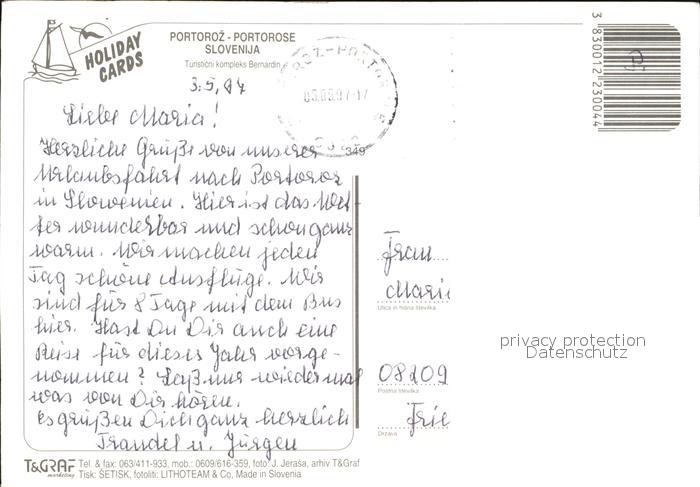 HOLIDAY
CARDS
PORTOROŽ - PORTOROSE
SLOVENIJA
Turistični kompleks Bernardin
3.5.94
3 830012 230044
349
Liebe Maria!
Herzliche Grüße von unserer
Urlaubsfahrt nach Portoroz
in Slowenien. Hier ist das Wet-
ter wunderbar und schon ganz
warm. Wir machen jeden
Tag schöne Ausflüge. Wir
sind für 8 Tage mit dem Bus
hier. Hast Du Dir auch eine
Reise für dieses Jahr vorge-
nommen? Laß mal wieder mal
was von Dir hören.
Es grüßen Dich ganz herzlich
Traudel u. Jürgen
Frau
Mari
Ulica in hišna številka
privacy protection
Datenschutz
08209
Poštna številka
Država
T&GRAF
marketing
Tel. & fax: 063/411-933, mob.: 0609/616-359, foto: J. Jeraša, arhiv T&Graf
Tisk: ŠETISK, fotoliti: LITHOTEAM & Co, Made in Slovenia